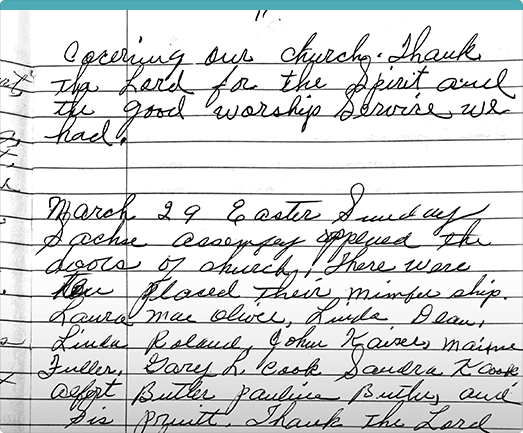 11
Cocering our church. Thank
The Lord for the Spirit and
the good worship Service we
had.
March 29 Easter Sunday
Sachse assempey oppened the
doors of church, There were
placed Their mimbu ship.
Laura Mae Olivee, Linda Dean,
Linda Roland, John Kaiser, Maime
Fuller, Gary L Cook Sandra K Cook
alfort Butler Pauline Butler, and
Sis Pruitt. Thank the Lord